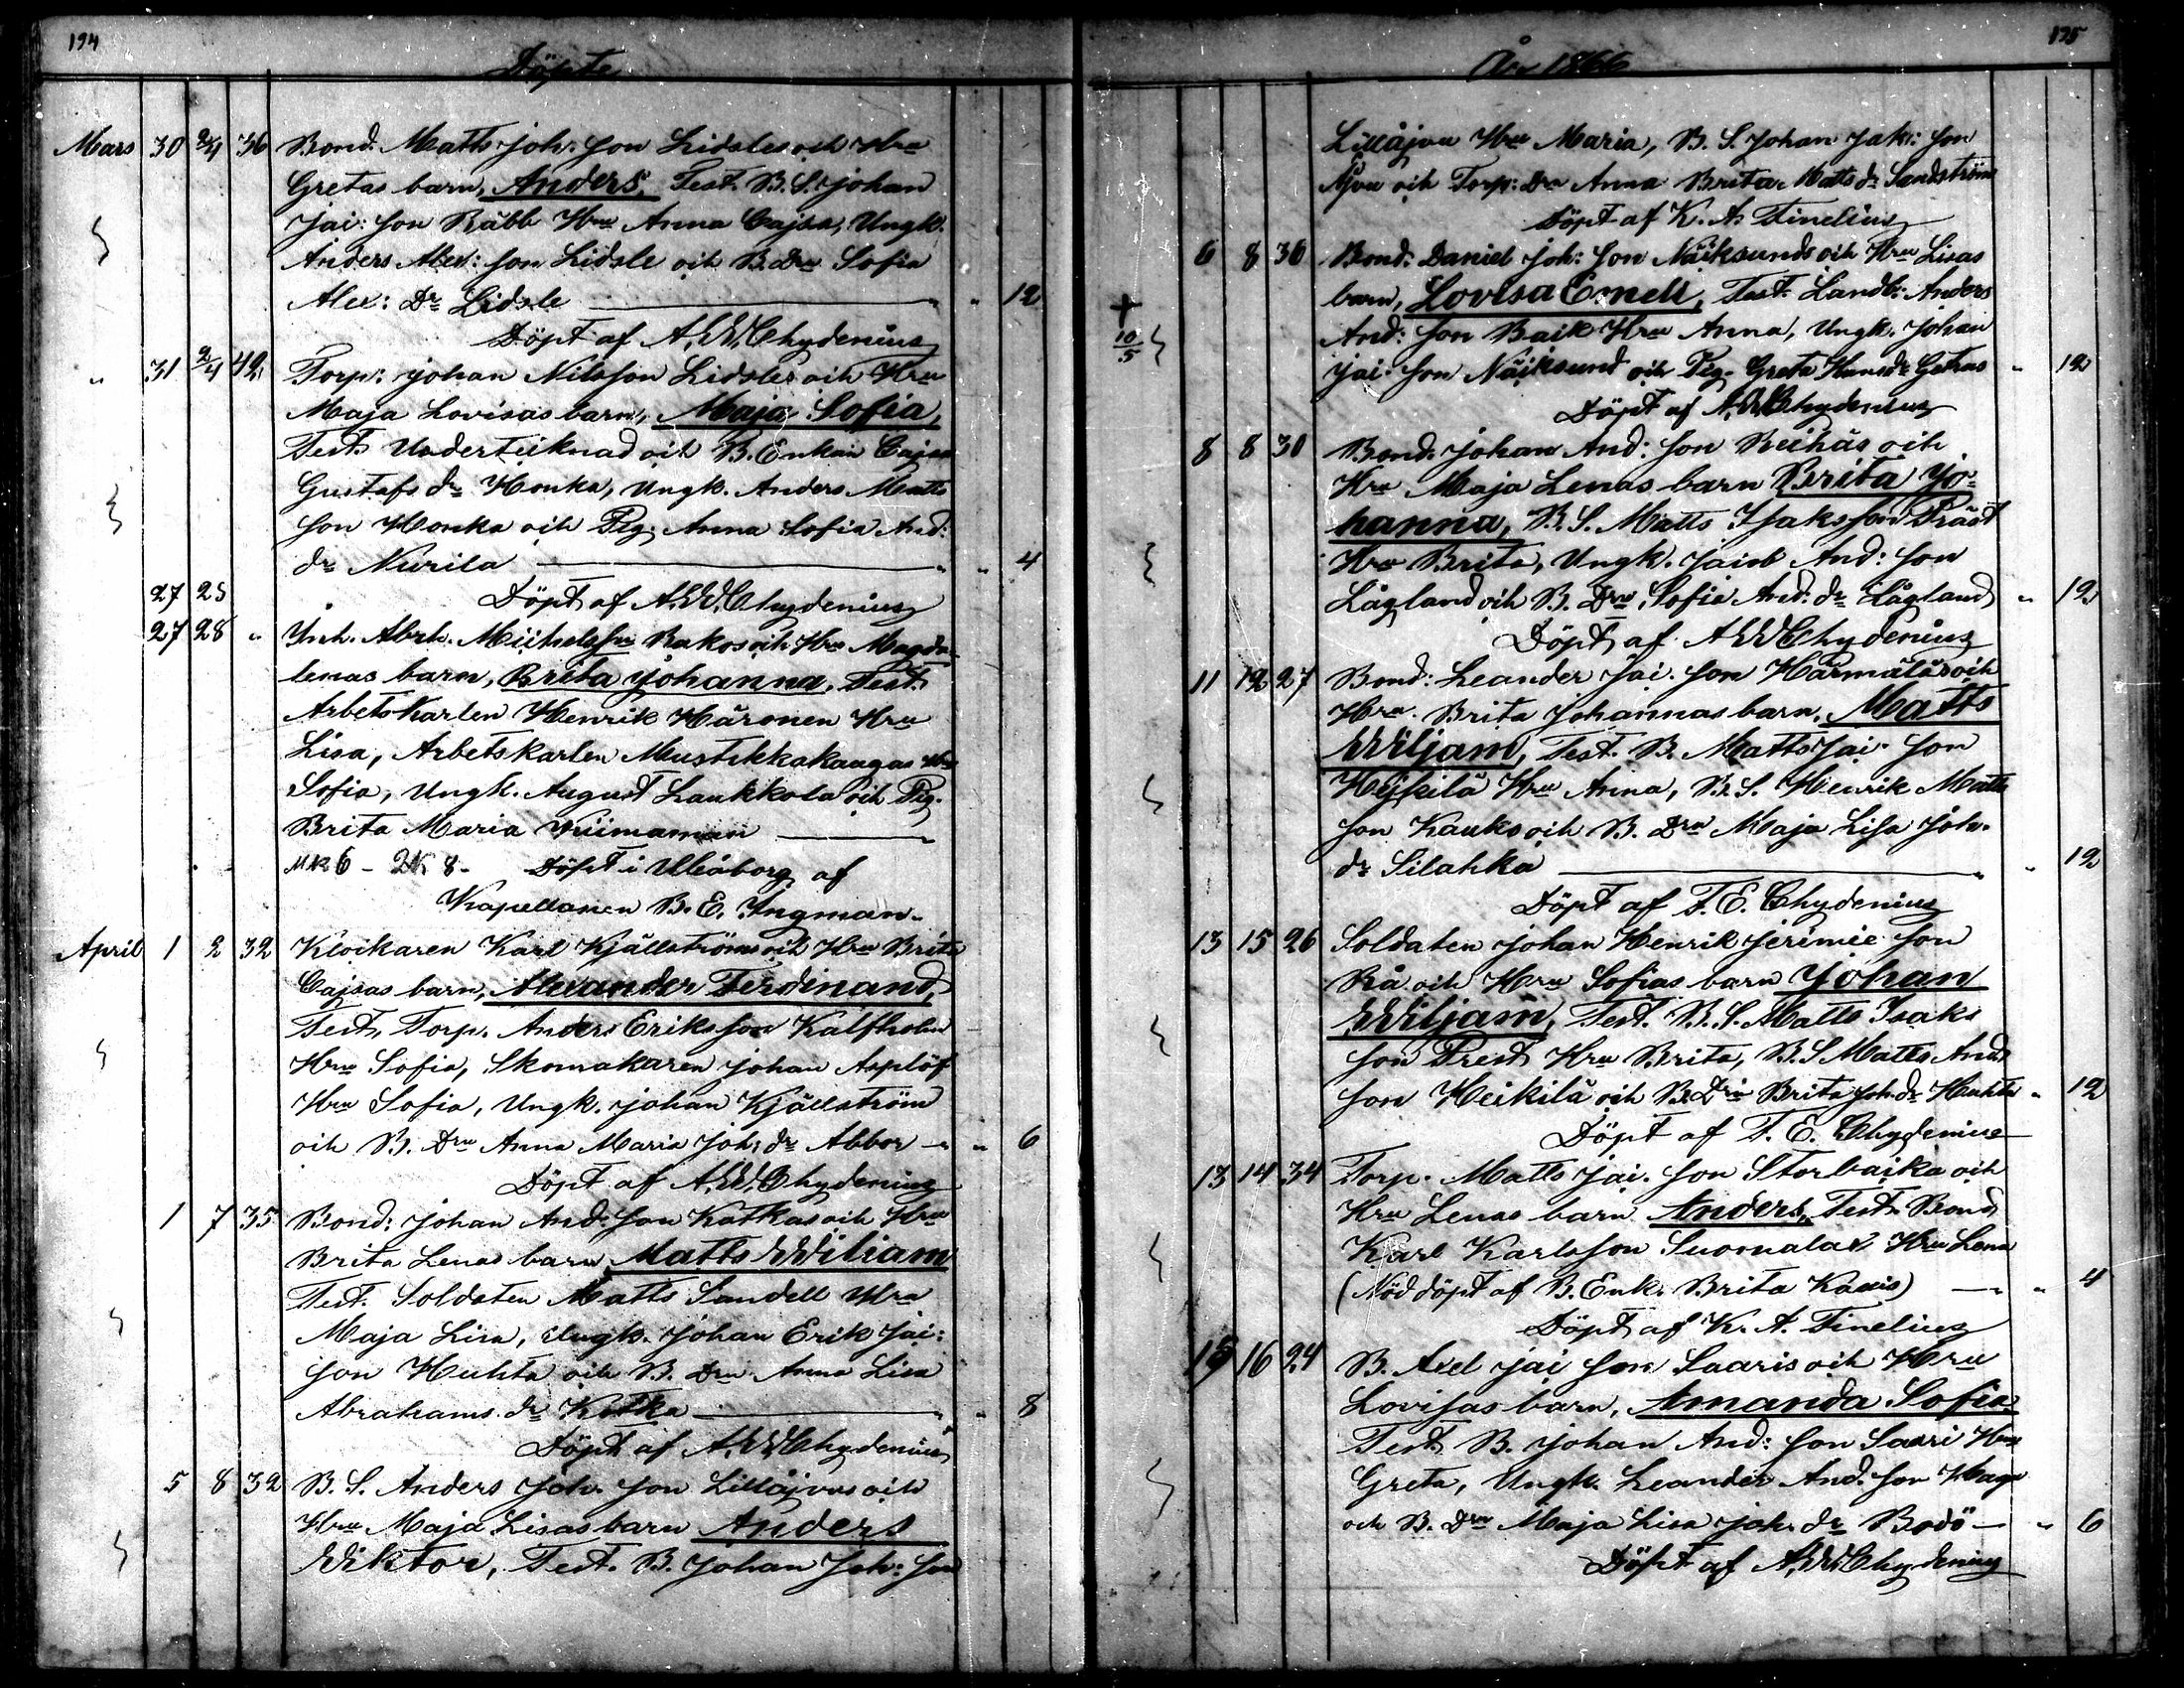 194
Döpte
Mars 30 2/4 36 Bond. Matts Joh: son Lidsles och Hru
Gretas barn, Anders, Test. B. S. Johan
Jac: son Räbb Hru Anna Cajsa, Ungk.
Anders Alex: son Lidsle och B. Dru Sofia
Alex: Dr Lidsle — " " 12
Döpt af A. W. Chydenius
" 31 2/4 42 Torp: Johan Nilsson Lidsles och Hru
Maja Lovisas barn, Maja Sofia,
Test. Undertecknad och B. Enkan Cajsa
Gustafs dr Honka, Ungk. Anders Matts
son Honka och Pig. Anna Sofia And:
dr Nurila — " " 4
27 28 Döpt af A. W. Chydenius
27 28 " Inh. Abrh. Michelsson Rakos och Hru Magda-
lenas barn, Brita Johanna, Test.
Arbetskarlen Henrik Häronen Hru
Lisa, Arbetskarlen Mustikkakangas Hru
Sofia, Ungk. August Laukkola och Pig.
Brita Maria Kiimamaan — "
MK 6 - 2K 8 - Döpt i Uleåborg af
Kapellanen B. E. Ingman.
April 1 2 32 Klockaren Karl Kjällströms och Hru Brita
Cajsas barn, Alexander Ferdinand,
Test. Torp. Anders Eriksson Kalfholm
Hru Sofia, Skomakaren Johan Asplöf
Hru Sofia, Ungk. Johan Kjällström
och B. Dru Anna Maria Joh: dr Abbor — " " 6
Döpt af A. W. Chydenius
1 7 35 Bond: Johan And: son Kotkas och Hru
Brita Lenas barn Matts Wiliam
Test. Soldaten Matts Sandell Hru
Maja Lisa, Ungk. Johan Erik Jac:
son Huhta och B. Dru Anna Lisa
Abrahams dr Kotka — " " 8
Döpt af A. W. Chydenius
5 8 32 B. S. Anders Joh. son Lillåjvus och
Hru Maja Lisas barn Anders
Wiktor, Test. B. Johan Joh: son
195
År 1866
Lillåjvu Hru Maria, B. S. Johan Jak: son
Åjvu och Torp: Dru Anna Brita Matts dr Sandström
Döpt af K. A. Finelius
6 8 36 Bond: Daniel Joh: son Näcksunds och Hru Lisas
+ barn, Lovisa Emeli, Test. Landb: Anders
10/5 And: son Baik Hru Anna, Ungk. Johan
Jac: son Näcksund och Pig. Greta Hans dr Gertas " 12
Döpt af A. W. Chydenius
8 8 30 Bond. Johan And: son Reihäs och
Hru Maja Lenas barn Brita Jo-
hanna, B. S. Matts Isaksson Präst
Hru Brita, Ungk. Jacob And: son
Lågland och B. Dru Sofia And: dr Lågland " 12
Döpt af A. W. Chydenius
11 12 27 Bond: Leander Jac. son Härmäläs och
Hru Brita Johannas barn, Matts
Wiljam, Test. B. Matts Jac. son
Hejkilä Hru Anna, B. S. Henrik Matts
son Kauko och B. Dru Maja Lisa Joh.
dr Silahka — " " 12
Döpt af F. E. Chydenius
13 15 26 Soldaten Johan Henrik Jeremie son
Rå och Hru Sofias barn Johan
Wiljam, Test. B. S. Matts Isaks
son Prest Hru Brita, B. S. Matts And.
son Heikilä och B. Dru Brita Joh. dr Huhta " 12
Döpt af F. E. Chydenius
13 14 34 Torp. Matts Jac. son Storbacka och
Hru Lenas barn Anders, Test. Bond
Karl Karlsson Suomalax Hru Lena
(Nöddöpt af B. Enk. Brita Kauis) — " " 4
Döpt af K. A. Finelius
15 16 24 B. Axel Jac son Saaris och Hru
Lovisas barn, Amanda Sofia
Test. B. Johan And: son Saari Hru
Greta, Ungk. Leander And. son Haga
och B. Dru Maja Lisa Joh. dr Bodö — " 6
Döpt af A. W. Chydenius